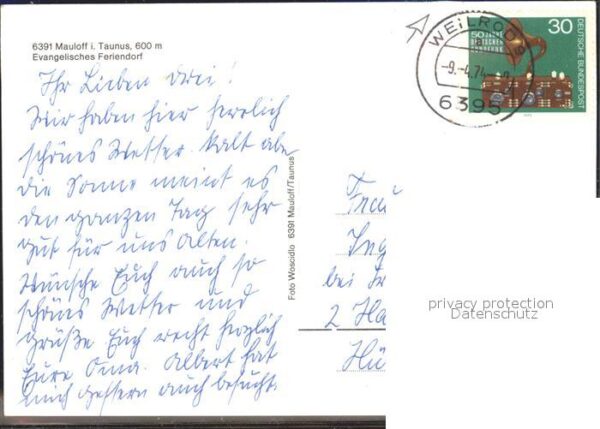 6391 Mauloff i. Taunus, 600 m
Evangelisches Feriendorf
Ihr Lieben drei!
Wir haben hier herrlich
schönes Wetter. Kalt aber
die Sonne meint es
den ganzen Tag sehr
gut für uns Alten.
Wünsche Euch auch so
schönes Wetter und
grüße Euch recht herzlich
Eure Oma. Albert hat
mich gestern auch besucht.
Foto Woscidlo 6391 Mauloff/Taunus
WEILROD
-9.-4.74
6395
50 JAHRE
DEUTSCHER
RUNDFUNK
30
DEUTSCHE BUNDESPOST
Frau
Ing
bei
2 Ha
Hü
privacy protection
Datenschutz